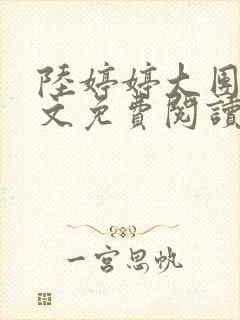 陸婷婷大團
文免費閱讀
一宮思帆